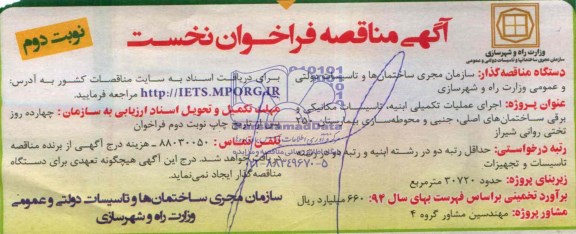 آگهی مناقصه فراخوان نخست
نوبت دوم
وزارت راه و شهرسازی
سازمان مجری ساختمان‌ها و تاسیسات دولتی و عمومی
دستگاه مناقصه‌گذار: سازمان مجری ساختمان‌ها و تاسیسات دولتی
و عمومی وزارت راه و شهرسازی
عنوان پروژه: اجرای عملیات تکمیلی ابنیه، تاسیسات مکانیکی و
برقی ساختمان‌های اصلی، جنبی و محوطه‌سازی بیمارستان ۲۵۰
تختی روانی شیراز
رتبه درخواستی: حداقل رتبه دو در رشته ابنیه و رتبه دو در رشته
تاسیسات و تجهیزات
زیربنای پروژه: حدود ۳۰۷۲۰ مترمربع
برآورد تخمینی براساس فهرست بهای سال ۹۴: ۶۶۰ میلیارد ریال
مشاور پروژه: مهندسین مشاور گروه ۴
برای دریافت اسناد به سایت مناقصات کشور به آدرس:
http://IETS.MPORG.IR مراجعه فرمایید.
مهلت تکمیل و تحویل اسناد ارزیابی به سازمان: چهارده روز
از تاریخ چاپ نوبت دوم فراخوان
تلفن تماس: ۸۸۰۳۰۰۵۰ - هزینه درج آگهی از برنده مناقصه
دریافت خواهد شد. درج این آگهی هیچگونه تعهدی برای دستگاه
مناقصه‌گذار ایجاد نمی‌نماید.
سازمان مجری ساختمان‌ها و تاسیسات دولتی و عمومی
وزارت راه و شهرسازی
ParsNamadData
۰۲۱-۸۸۳۴۹۶۷۰-۵